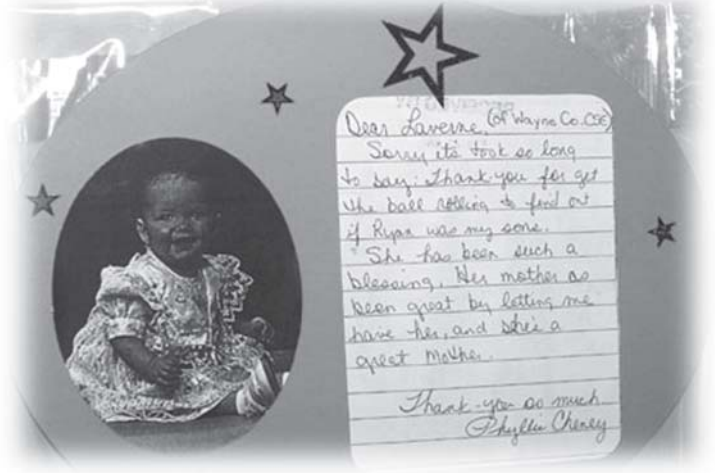 Dear Laverne, (of Wayne Co. CSE)
Sorry it's took so long
to say: Thank-you for get
the ball rolling to find out
if Ryan was my sons.
She has been such a
blessing. Her mother as
been great by letting me
have her, and she's a
great Mother.
Thank-you so much
Phyllis Cheney